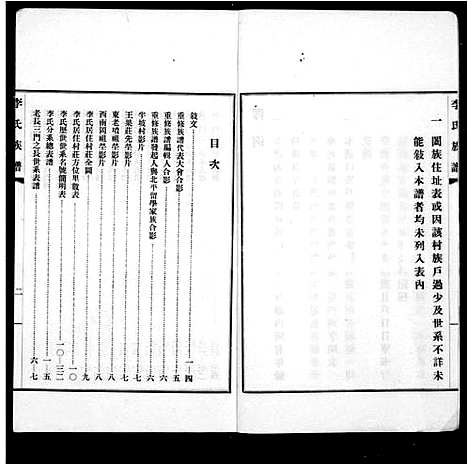 李氏族譜
一 闔族住址表或因該村族戶過少及世系不詳未
能敍入本譜者均未列入表內
目次
敍文 一-四
重修族譜代表大會合影 五
重修族譜編輯人合影 六
重修族譜發起人與北平留學家族合影 六
牛坡村影片 七
王果莊先塋影片 七
東老墳祖塋影片 八
西南園祖塋影片 八
李氏居住村莊全圖 九
李氏居住村莊方位里數表 一〇
李氏歷世世系名號簡明表 一〇-三二
李氏分系總表譜 一-五
老長三門之長世系表譜 六-七
李氏族譜
二